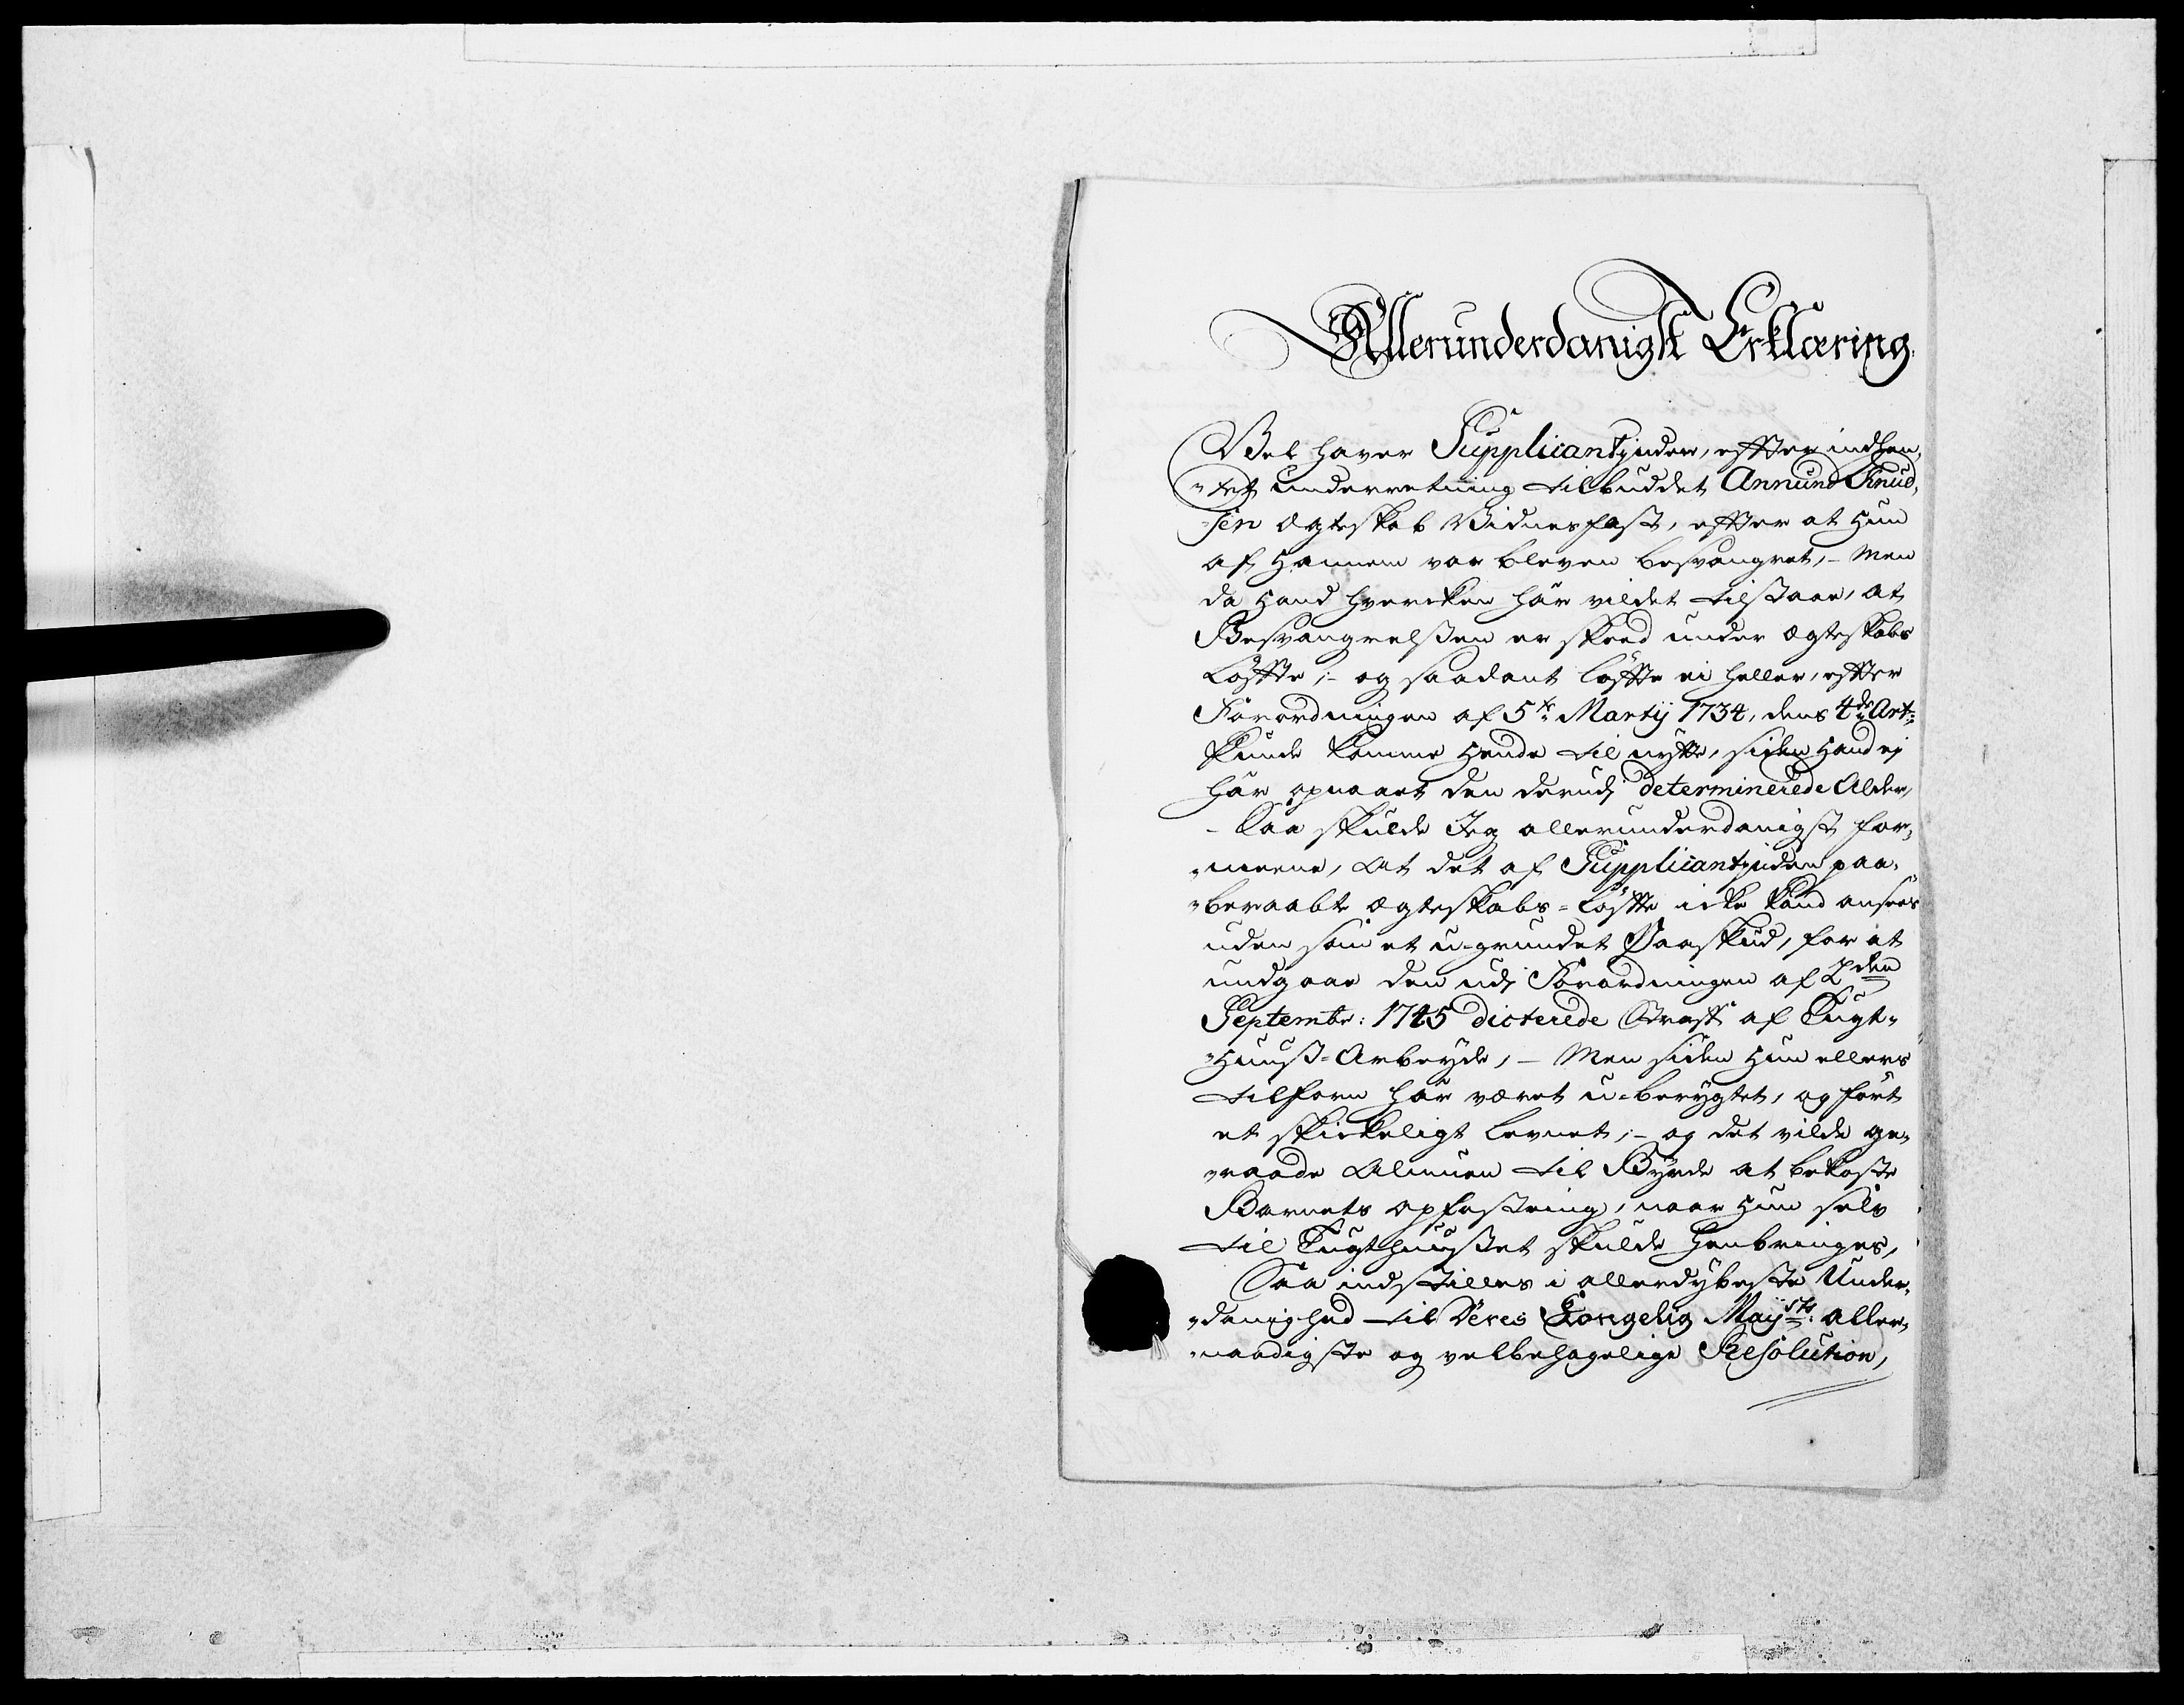 Allerunderdanigst Erklæring.
Vel haver Supplicantinden, effter indhen,
„tet underretning tilbuddet Annund Knud,
„sen Ægteskab Vidnesfast, effter at Hun
af Hannem var bleven besvangret, – Men
da Hand hvercken har vildet tilstaae, at
Besvangrelsen er skeed under Ægteskabs
Løffte, – og saadant løffte ei heller, effter
Forordningen af 5te Martij 1734, dens 4de Art:
kunde komme Hende til nytte, siden Hand ej
har opnaaet den derudj determinerede Alder,
– Saa skulde Jeg allerunderdanigst for,
„meene, at det af Supplicantinden paa,
„beraabte Ægteskabs-Løffte icke kand ansees
uden som et u-grundet Paaskud, for at
undgaae den udj Forordningen af 2den
Septembr: 1745 dicterede Straff af Tugt,
„Huuss-Arbeyde, – Men siden Hun ellers
tilforn har været u-berygtet, og ført
et skickeligt Levnet, – og det vilde ge,
„raade Almuen til Byrde at bekoste
Barnets opfostring, naar Hun selv
til Tugthuuset skulde henbringes,
Saa indstilles i allerdybeste Under,
„danighed til Deres Kongelig Mayts: aller,
„naadigste og velbehagelige Resolution,